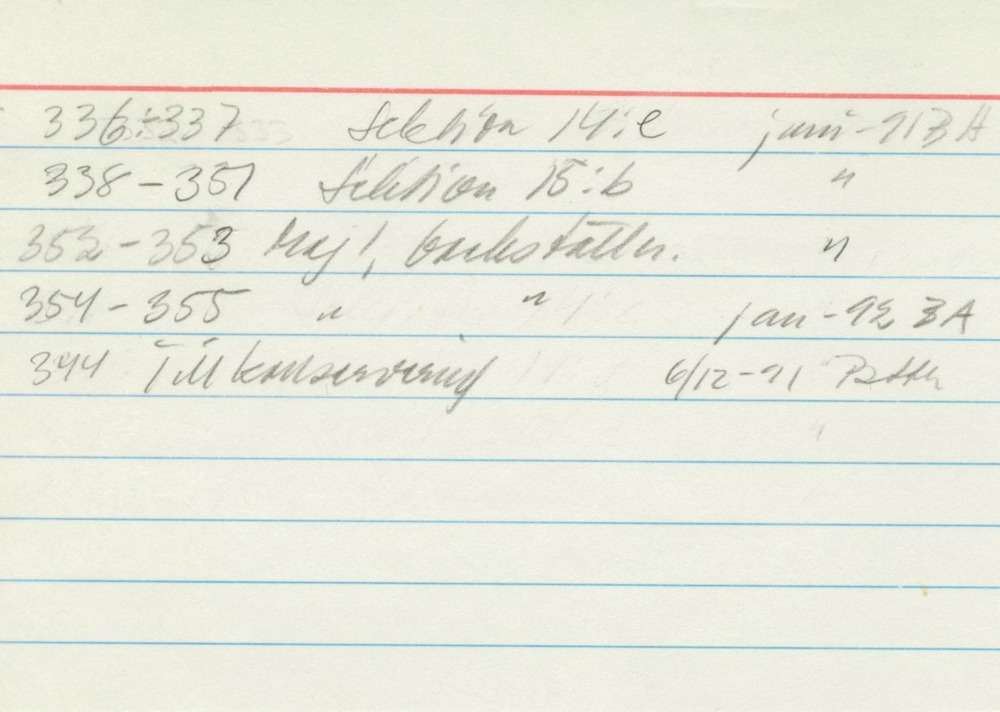 336-337 Sektion 14:e juni-91 BA
338-351 Sektion 15:b "
352-353 Maj 1, backställn. "
354-355 " " jan-92 BA
344 Till konservering 6/12-91